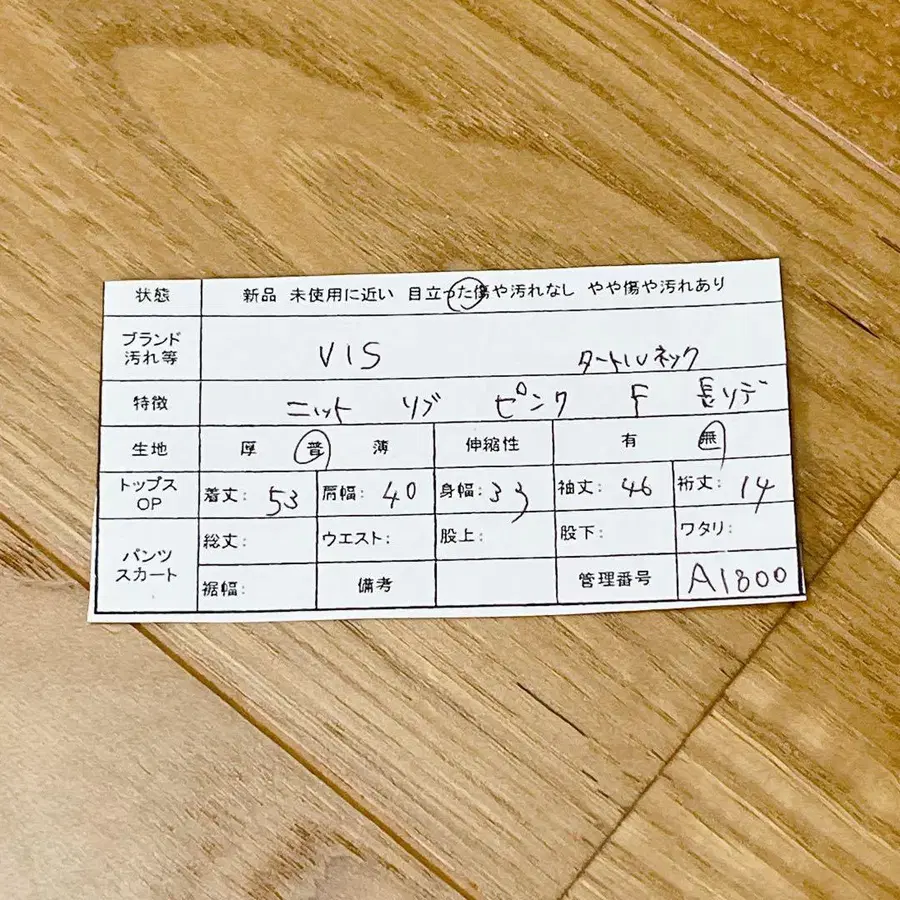 状態 新品 未使用に近い 目立った傷や汚れなし やや傷や汚れあり
ブランド
汚れ等 VIS タートルネック
特徴 ニット リブ ピンク F 長ソデ
生地 厚 普 薄 伸縮性 有 無
トップス
OP 着丈: 53 肩幅: 40 身幅: 33 袖丈: 46 裄丈: 14
パンツ
スカート 総丈: ウエスト: 股上: 股下: ワタリ:
裾幅: 備考 管理番号 A1800